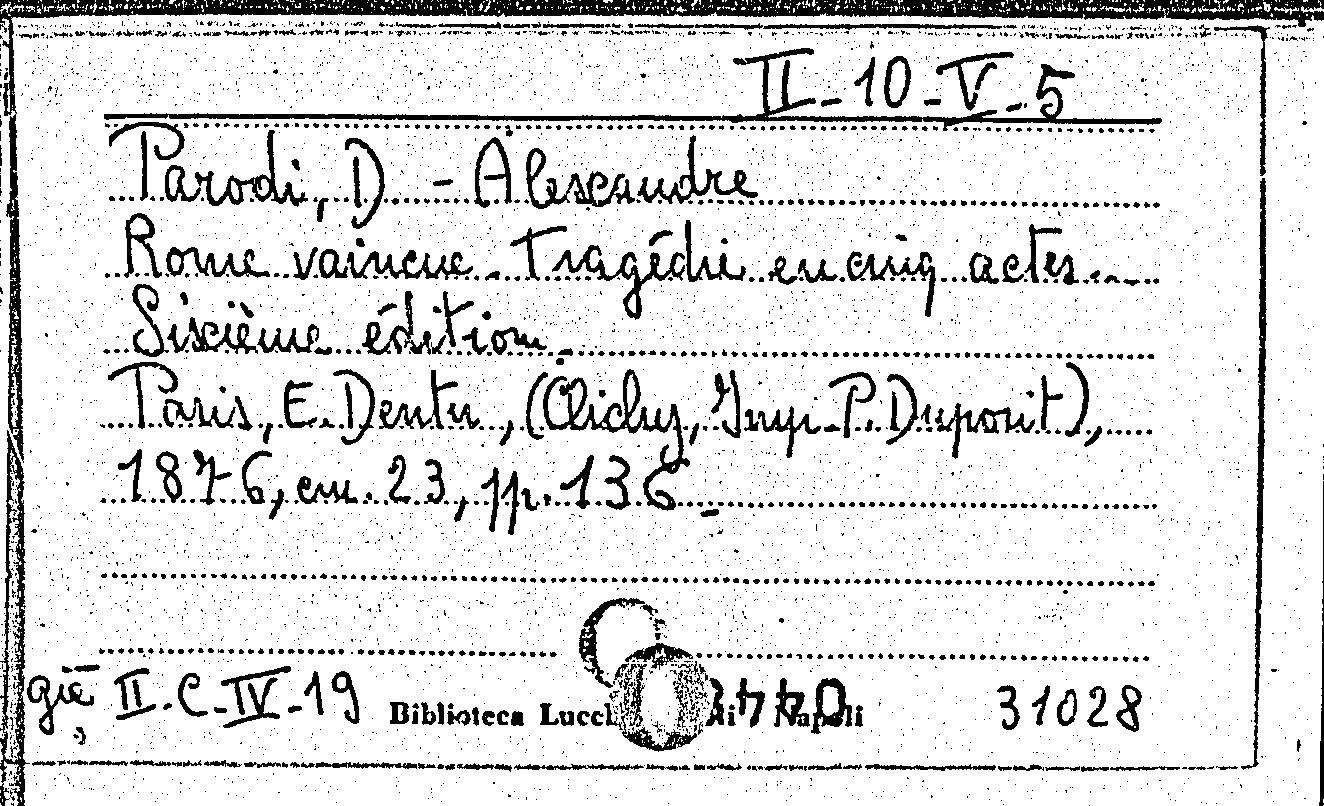 II-10-V-5
Parodi, D. - Alexandre
Rome vaincue. Tragédie en cinq actes...
Sixième édition.
Paris, E. Dentu, (Clichy, Imp. P. Dupont),
1876, cm. 23, pp. 136.
già II.C.IV-19 Biblioteca Napoli 31028